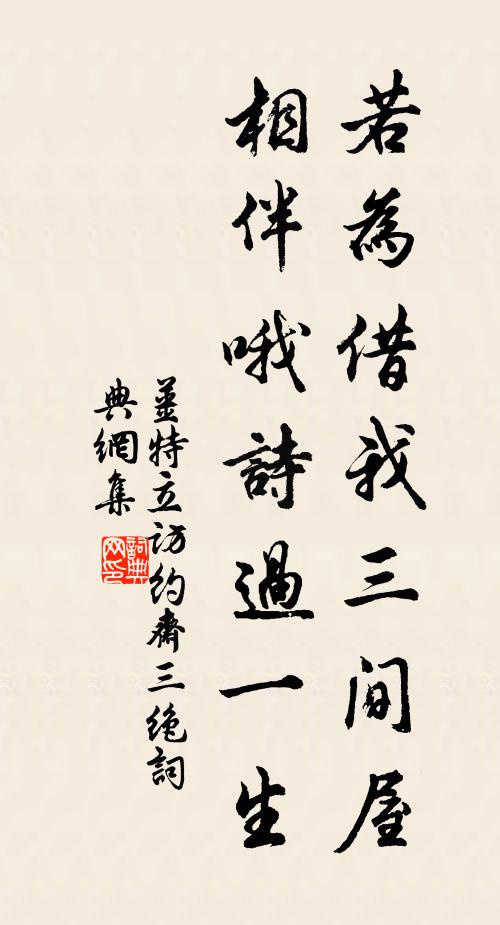 若為借我三間屋
相伴哦詩過一生
姜特立訪約齋三絕詞
典網集
詞典網印